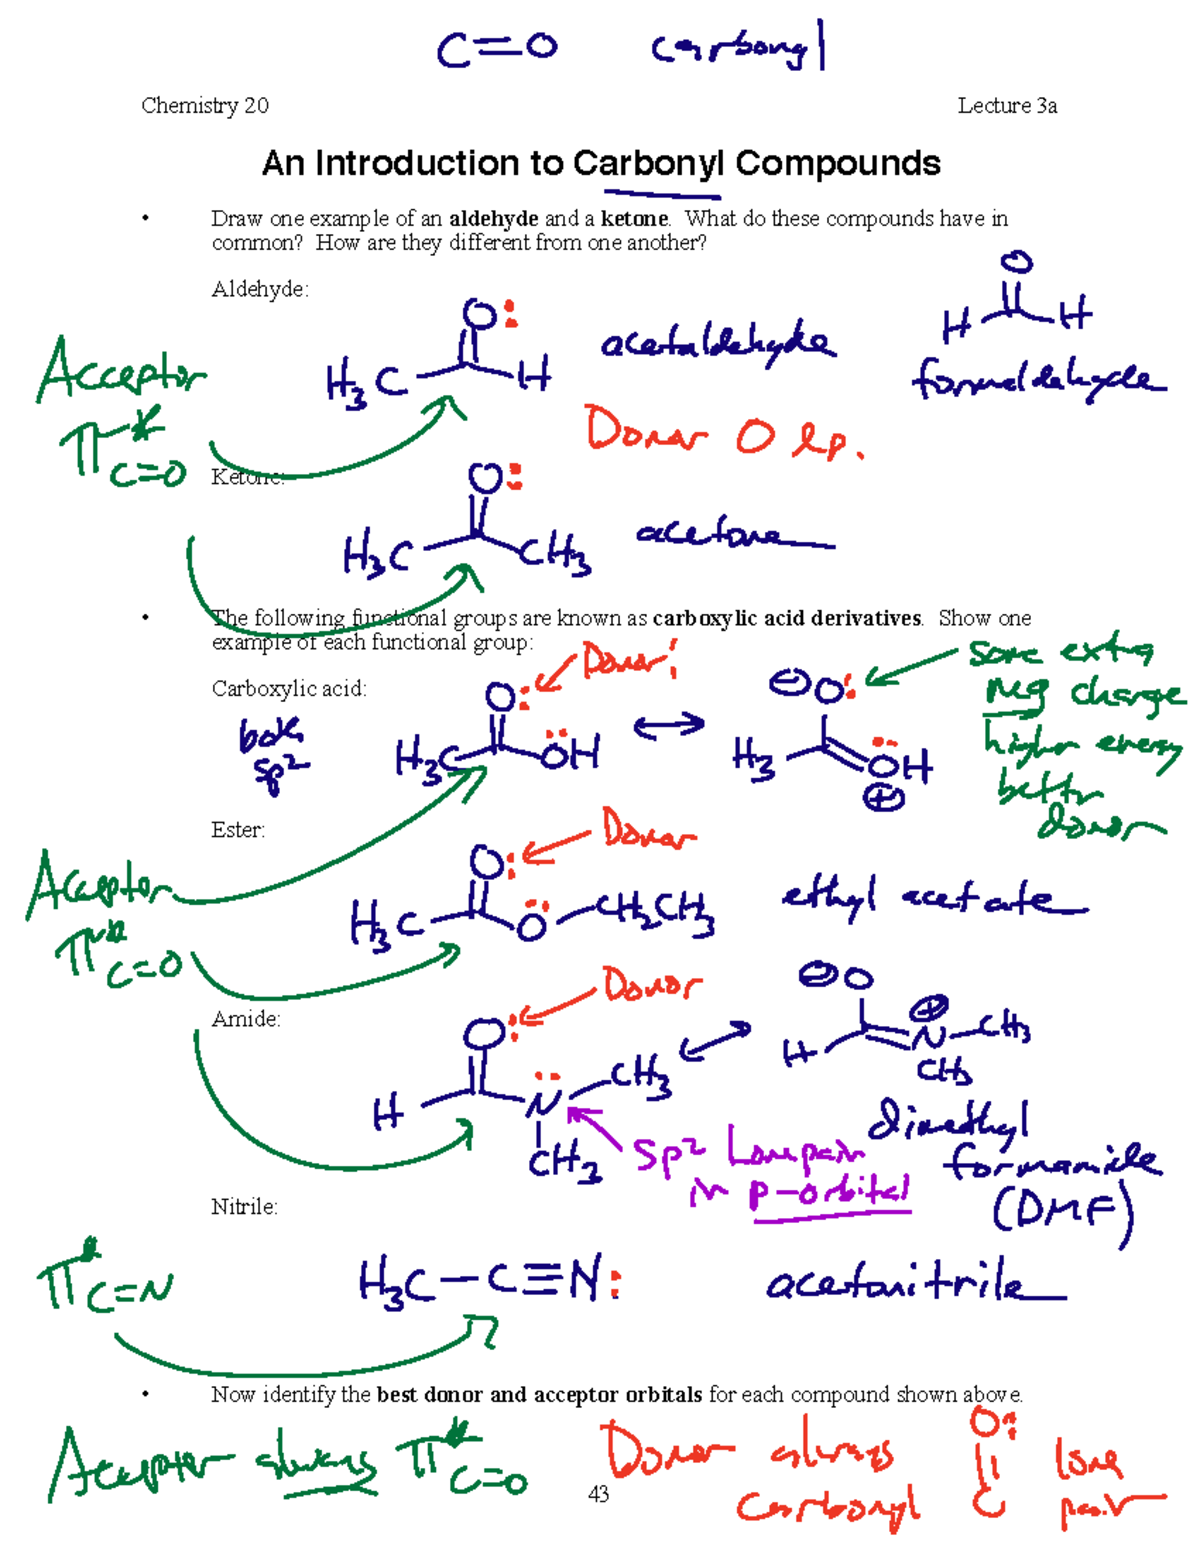 C=O carbonyl
Chemistry 20 Lecture 3a
An Introduction to Carbonyl Compounds
• Draw one example of an aldehyde and a ketone. What do these compounds have in
common? How are they different from one another?
Aldehyde:
O:
H3C H
acetaldehyde
O
H H
formaldehyde
Acceptor
π* C=O
Donor O lp.
Ketone:
O:
H3C CH3
acetone
• The following functional groups are known as carboxylic acid derivatives. Show one
example of each functional group:
Carboxylic acid:
both
sp2
O:
Donor!
H3C OH
⊖ O:
H3C OH
⊕
some extra
neg charge
higher energy
better
donor
Ester:
Acceptor
π* C=O
O:
Donor
H3C O CH2CH3
ethyl acetate
Amide:
O:
Donor
H N CH3
CH3
⊖ O
H N ⊕ CH3
CH3
sp2 Lone pair
in p-orbital
dimethyl
formamide
(DMF)
Nitrile:
π* C=N
H3C-C≡N:
acetonitrile
• Now identify the best donor and acceptor orbitals for each compound shown above.
Acceptor always π* C=O
Donor always
carbonyl
O:
C
lone
pair
43